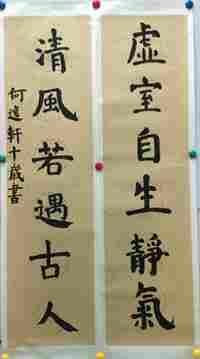 虛室自生靜氣
清風若遇古人
何逸軒十歲書